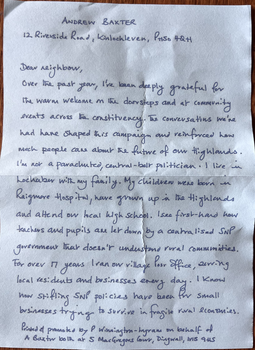 ANDREW BAXTER
12 Riverside Road, Kinlochleven, PH50 4QH
Dear neighbour,
Over the past year, I've been deeply grateful for
the warm welcome on the doorsteps and at community
events across the constituency. The conversations we've
had have shaped this campaign and reinforced how
much people care about the future of our Highlands.
I'm not a parachuted, central-belt politician - I live in
Lochaber with my family. My children were born in
Raigmore Hospital, have grown up in the Highlands
and attend our local high school. I see first-hand how
teachers and pupils are let down by a centralised SNP
government that doesn't understand rural communities.
For over 17 years I ran our village Post Office, serving
local residents and businesses every day. I know
how stifling SNP policies have been for small
businesses trying to survive in fragile rural economies.
Printed & promoted by P Winnington-Ingram on behalf of
A Baxter both at 5 MacGregor Court, Dingwall, IV15 9GS